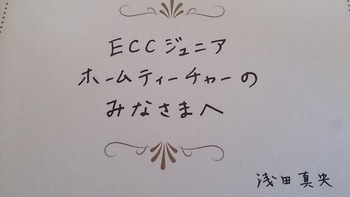 ECCジュニア
ホームティーチャーの
みなさまへ
浅田真央